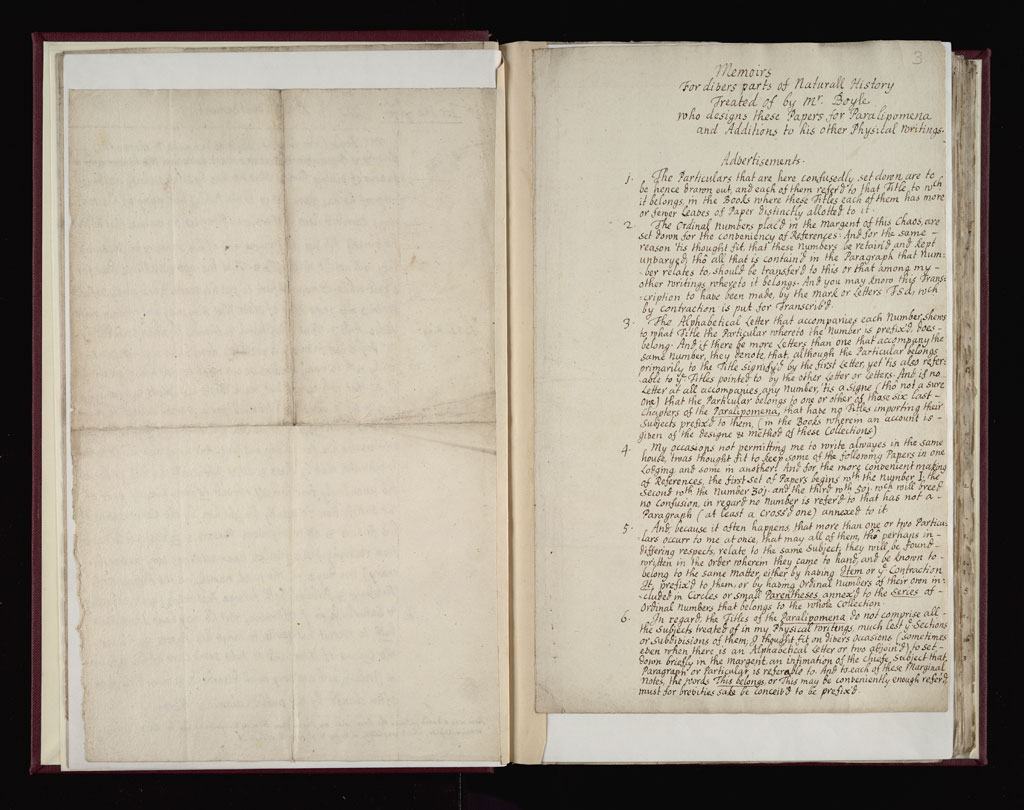 3
Memoirs
For divers parts of Naturall History
Treated of by Mr. Boyle
who designs these Papers for Paralipomena
and Additions to his other Physical Writings.
Advertisements.
1. The Particulars that are here confusedly set down are to
be hence drawn out, and each of them refer'd to that Title, to wch
it belongs, in the Books where these Titles each of them has more
or fewer Leaves of Paper distinctly allotted to it.
2 The Ordinal Numbers plac'd in the Margent of this Chaos, are
set down for the conveniency of References: And for the same -
reason 'tis thought fit, that these Numbers be retain'd and kept
unvaryed, thô all that is contain'd in the Paragraph that Num=
=ber relates to, should be transfer'd to this or that among my -
other Writings whereto it belongs. And you may know this Trans=
=cription to have been made, by the Mark or Letters Tsd, wch
by contraction is put for Transcrib'd.
3. The Alphabetical Letter that accompanies each Number, shews
to what Title the Particular whereto the Number is prefix'd, does -
belong. And if there be more Letters than one that accompany the
same Number, they denote, that, although the Particular belongs
primarily to the Title signify'd by the first Letter, yet 'tis also refer=
=able to ye Titles pointed to by the other Letter or Letters. And if no
Letter at all accompanies any Number, 'tis a signe (thô not a sure
one) that the Particular belongs to one or other of those six last -
Chapters of the Paralipomena, that have no Titles importing their
Subjects prefix'd to them, (in the Books wherein an account is -
given of the designe & method of these Collections)
4. My occasions not permitting me to write alwayes in the same
house, twas thought fit to keep some of the following Papers in one
Lodging and some in another: And for the more convenient making
of References, the first set of Papers begins wth the Number I, the
Second wth the Number 301. and the third wth 501. wch will breed
no confusion, in regard no Number is refer'd to that has not a -
Paragraph (at least a cross'd one) annexed to it
5. And, because it often happens, that more than one or two Particu=
=lars occurr to me at once, that may all of them, thô perhaps in -
differing respects, relate to the same Subject, they will be found -
written in the order wherein they came to hand, and be known to -
belong to the same Matter, either by having Item or ye Contraction
It, prefix'd to them, or by having Ordinal Numbers of their own in=
=cluded in Circles or small Parentheses annex'd to the series of -
Ordinal Numbers that belongs to the whole Collection.
6. In regard, the Titles of the Paralipomena do not comprise all -
the Subjects treated of in my Physical Writings, much less ye Sections
or Subdivisions of them, I thought fit on divers occasions (sometimes
even when there is an Alphabetical Letter or two adjoin'd) to set -
down briefly in the Margent, an intimation of the chiefe Subject that
Paragraph or Particular is referable to. And to each of these Marginal
Notes, the words This belongs, or This may be conveniently enough refer'd,
must for brevities sake be conceiv'd to be prefix'd